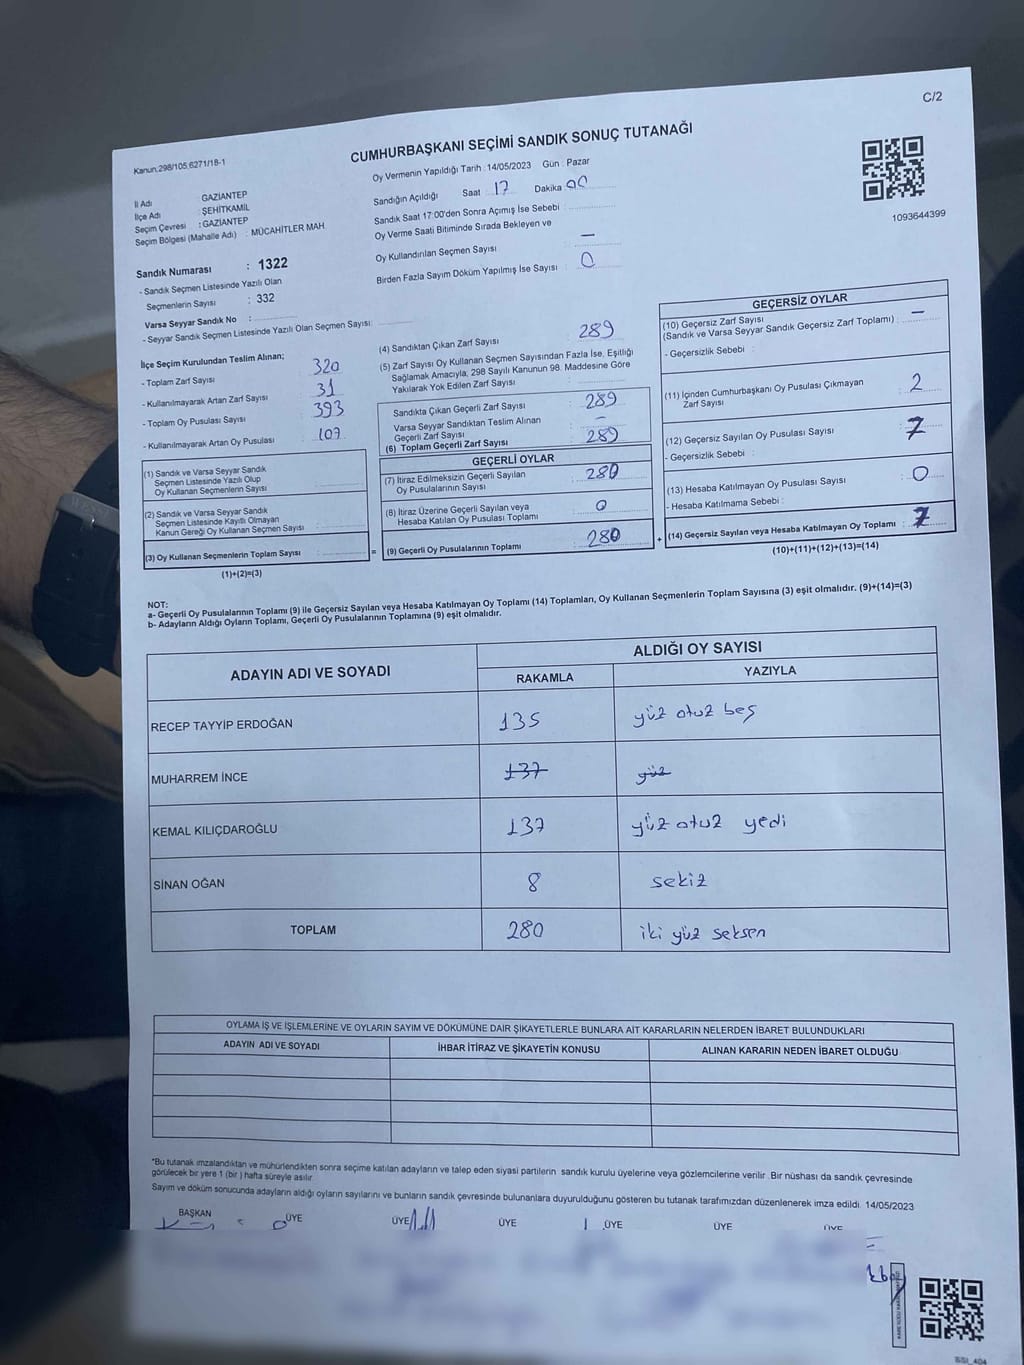 C/2
Kanun:298/105,6271/18-1
CUMHURBAŞKANI SEÇİMİ SANDIK SONUÇ TUTANAĞI
Oy Vermenin Yapıldığı Tarih : 14/05/2023 Gün : Pazar
İl Adı : GAZİANTEP
İlçe Adı : ŞEHİTKAMİL
Seçim Çevresi : GAZİANTEP
Seçim Bölgesi (Mahalle Adı) : MÜCAHİTLER MAH
Sandığın Açıldığı Saat 17 Dakika 00
Sandık Saat 17:00'den Sonra Açımış İse Sebebi :
Oy Verme Saati Bitiminde Sırada Bekleyen ve
Oy Kullandırılan Seçmen Sayısı : —
Birden Fazla Sayım Döküm Yapılmış İse Sayısı : 0
1093644399
Sandık Numarası : 1322
- Sandık Seçmen Listesinde Yazılı Olan
Seçmenlerin Sayısı : 332
Varsa Seyyar Sandık No :
- Seyyar Sandık Seçmen Listesinde Yazılı Olan Seçmen Sayısı:
İlçe Seçim Kurulundan Teslim Alınan;
- Toplam Zarf Sayısı 320
- Kullanılmayarak Artan Zarf Sayısı 31
- Toplam Oy Pusulası Sayısı 393
- Kullanılmayarak Artan Oy Pusulası 107
(1) Sandık ve Varsa Seyyar Sandık
Seçmen Listesinde Yazılı Olup
Oy Kullanan Seçmenlerin Sayısı
(2) Sandık ve Varsa Seyyar Sandık
Seçmen Listesinde Kayıtlı Olmayan
Kanun Gereği Oy Kullanan Seçmen Sayısı
(3) Oy Kullanan Seçmenlerin Toplam Sayısı =
(1)+(2)=(3)
(4) Sandıktan Çıkan Zarf Sayısı : 289
(5) Zarf Sayısı Oy Kullanan Seçmen Sayısından Fazla İse, Eşitliği
Sağlamak Amacıyla, 298 Sayılı Kanunun 98. Maddesine Göre
Yakılarak Yok Edilen Zarf Sayısı :
Sandıkta Çıkan Geçerli Zarf Sayısı : 289
Varsa Seyyar Sandıktan Teslim Alınan
Geçerli Zarf Sayısı : —
(6) Toplam Geçerli Zarf Sayısı : 289
GEÇERLİ OYLAR
(7) İtiraz Edilmeksizin Geçerli Sayılan
Oy Pusulalarının Sayısı : 280
(8) İtiraz Üzerine Geçerli Sayılan veya
Hesaba Katılan Oy Pusulası Toplamı : 0
(9) Geçerli Oy Pusulalarının Toplamı : 280 +
GEÇERSİZ OYLAR
(10) Geçersiz Zarf Sayısı
(Sandık ve Varsa Seyyar Sandık Geçersiz Zarf Toplamı) : —
- Geçersizlik Sebebi :
(11) İçinden Cumhurbaşkanı Oy Pusulası Çıkmayan
Zarf Sayısı : 2
(12) Geçersiz Sayılan Oy Pusulası Sayısı : 7
- Geçersizlik Sebebi :
(13) Hesaba Katılmayan Oy Pusulası Sayısı : 0
- Hesaba Katılmama Sebebi :
(14) Geçersiz Sayılan veya Hesaba Katılmayan Oy Toplamı : 7
(10)+(11)+(12)+(13)=(14)
NOT:
a- Geçerli Oy Pusulalarının Toplamı (9) ile Geçersiz Sayılan veya Hesaba Katılmayan Oy Toplamı (14) Toplamları, Oy Kullanan Seçmenlerin Toplam Sayısına (3) eşit olmalıdır. (9)+(14)=(3)
b- Adayların Aldığı Oyların Toplamı, Geçerli Oy Pusulalarının Toplamına (9) eşit olmalıdır.
ADAYIN ADI VE SOYADI ALDIĞI OY SAYISI
RAKAMLA YAZIYLA
RECEP TAYYİP ERDOĞAN 135 yüz otuz beş
MUHARREM İNCE 137 yüz
KEMAL KILIÇDAROĞLU 137 yüz otuz yedi
SİNAN OĞAN 8 sekiz
TOPLAM 280 iki yüz seksen
OYLAMA İŞ VE İŞLEMLERİNE VE OYLARIN SAYIM VE DÖKÜMÜNE DAİR ŞİKAYETLERLE BUNLARA AİT KARARLARIN NELERDEN İBARET BULUNDUKLARI
ADAYIN ADI VE SOYADI İHBAR İTİRAZ VE ŞİKAYETİN KONUSU ALINAN KARARIN NEDEN İBARET OLDUĞU
*Bu tutanak imzalandıktan ve mühürlendikten sonra seçime katılan adayların ve talep eden siyasi partilerin sandık kurulu üyelerine veya gözlemcilerine verilir. Bir nüshası da sandık çevresinde
görülecek bir yere 1 (bir) hafta süreyle asılır.
Sayım ve döküm sonucunda adayların aldığı oyların sayılarını ve bunların sandık çevresinde bulunanlara duyurulduğunu gösteren bu tutanak tarafımızdan düzenlenerek imza edildi. 14/05/2023
BAŞKAN ÜYE ÜYE ÜYE ÜYE ÜYE ÜYE